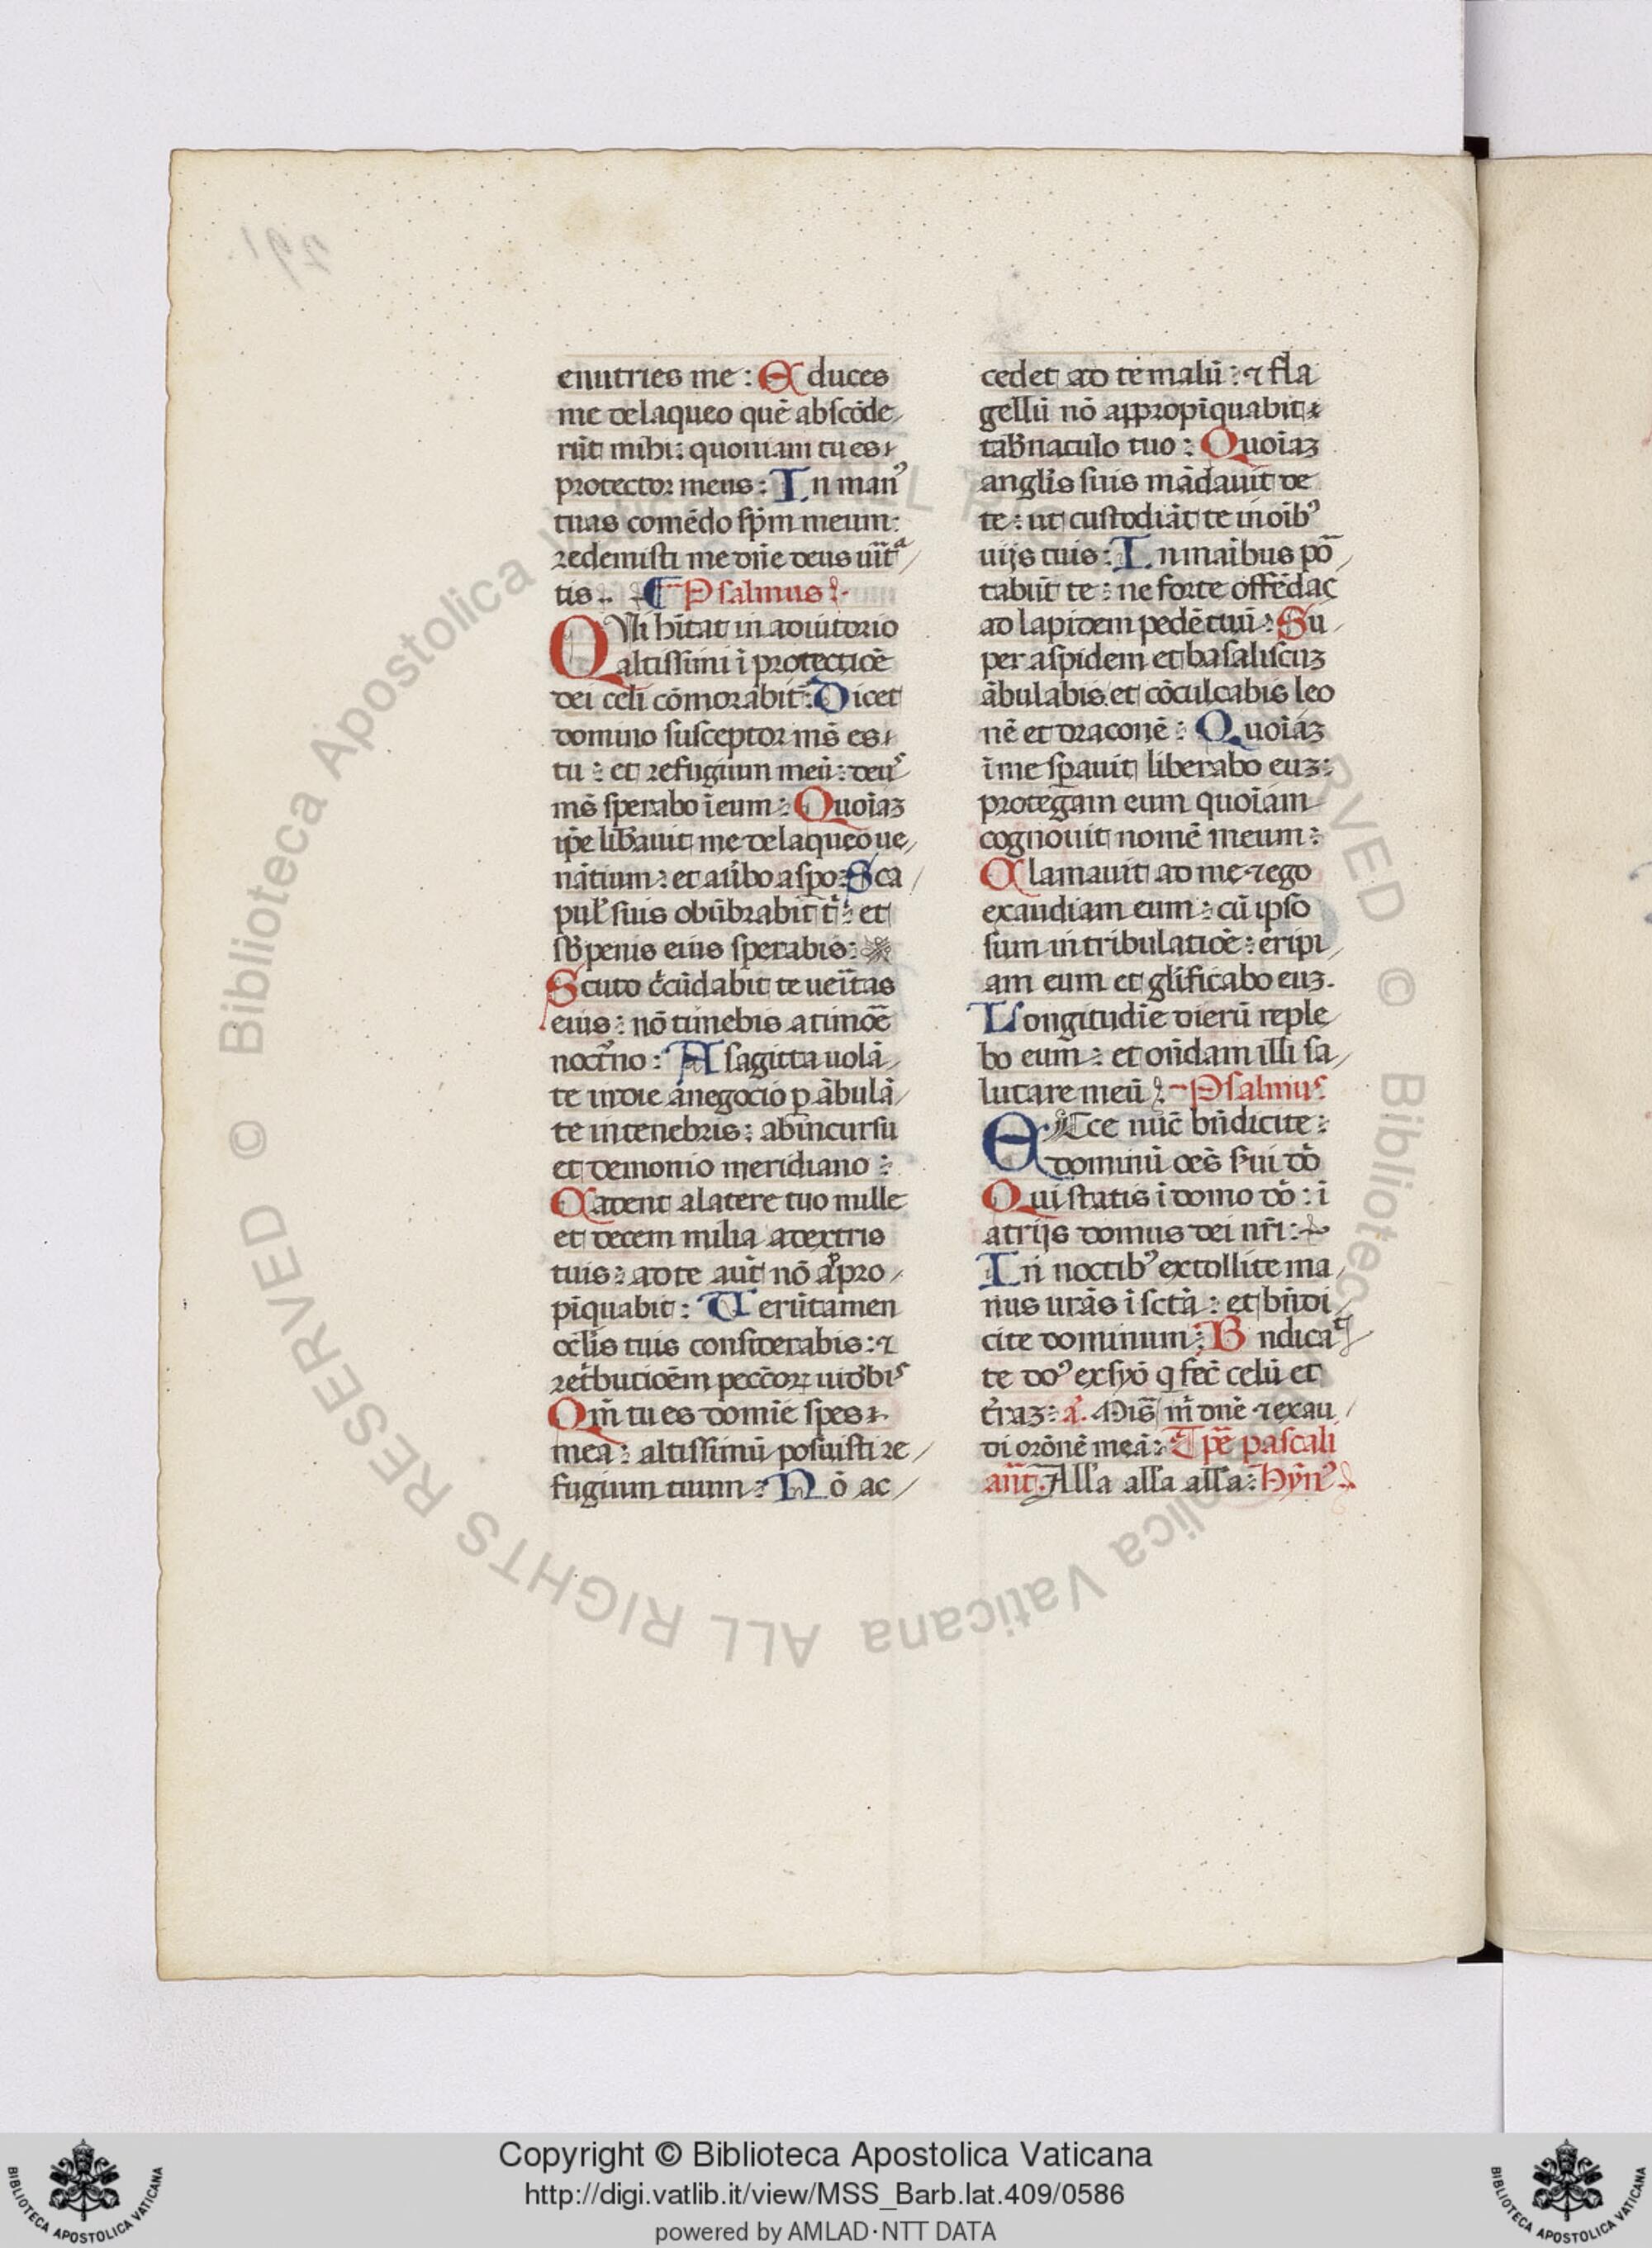 enutries me : Educes
me de laqueo quē abscōde
rūt mihi : quoniam tu es
protector meus : In manꝰ
tuas comēdo sp̄m meum :
redemisti me dn̄e deus ūitᵃ
tis. ¶ Psalmus
QVi hītat in adiutorio
altissimi ī protectiōe
dei celi cōmorabit᷑ : Dicet
domino susceptor ms̄ es
tu : et refugium meū : deus
ms̄ sperabo ī eum : Quoiaꝫ
ip̄e lib̄auit me de laqueo ue
nātium : et a ūbo aspo : Sca
pul̄ suis obūbrabit t̄ : et
sb̄ penis eius sperabis :
Scuto c̄cūdabit te ueītas
eius : nō timebis a timōe
noct̄no : A sagitta uolā
te in die a negocio ꝑābulā
te in tenebris : ab īncursu
et demonio meridiano :
Cadent a latere tuo mille
et decem milia a dextris
tuis : ad te aūt nō apꝓ
pīquabit : Uerūtamen
ocl̄is tuis considerabis : ⁊
ret̄butioēm pecc̄oꝝ uid̄bis
Qm̄ tu es domīe spes
mea : altissimū posuisti re
fugium tuum : Nō ac
cedet ad te malū : ⁊ fla
gellū nō appropīquabit
tab̄naculo tuo : Quoīaꝫ
angl̄is suis mādauit de
te : ut custodiāt te in oīb⁹
uijs tuis : In maībus poͬ
tabūt te : ne forte offēdas
ad lapidem pedē tuū : Su
per aspidem et basaliscuꝫ
ābulabis et cōculcabis leo
nē et draconē : Quoīaꝫ
ī me sꝑauit liberabo euꝫ :
protegam eum quoīam
cognouit nomē meum :
Clamauit ad me ⁊ ego
exaudiam eum : cū ipso
sum in tribulatiōe : eripi
am eum et gl̄ificabo euꝫ.
Longitudīe dierū reple
bo eum : et on̄dam illi sa
lutare meū : Psalmus
ECce nūc bn̄dicite :
dominū oēs s̄ui dō
Qui statis ī domo dō : ī
atrijs domus dei nr̄i :
In noctib⁹ extollite ma
nus urās ī sctā : et bn̄di
cite dominum : Bndicat
te do⁹ ex syō q fec̄ celū et
t̄raꝫ : a. Mis̄ m̄ dn̄e ⁊ exau
di orōnē meā : Tp̄e pascali
an̄t. All'a all'a all'a : Hyn⁹
Copyright © Biblioteca Apostolica Vaticana
http://digi.vatlib.it/view/MSS_Barb.lat.409/0586
powered by AMLAD·NTT DATA
BIBLIOTECA APOSTOLICA VATICANA
BIBLIOTECA APOSTOLICA VATICANA
© Biblioteca Apostolica Vaticana ALL RIGHTS RESERVED © Biblioteca Apostolica Vaticana ALL RIGHTS RESERVED